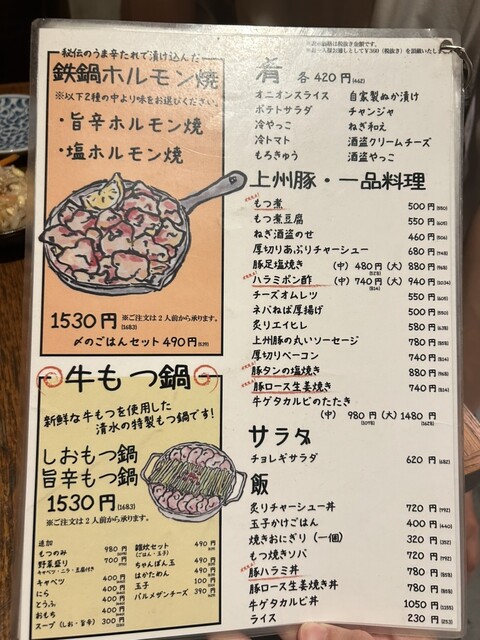 ※表示価格は税抜き金額です。
秘伝のうま辛たれで漬け込んだ
鉄鍋ホルモン焼
※以下2種の中より味をお選びください。
・旨辛ホルモン焼
・塩ホルモン焼
1530円(1683)
※ご注文は2人前から承ります。
〆のごはんセット 490円(539)
牛もつ鍋
新鮮な牛もつを使用した
清水の特製もつ鍋です!
しおもつ鍋
旨辛もつ鍋
1530円(1683)
※ご注文は2人前から承ります。
追加
もつのみ 980円
野菜盛り 700円
キャベツ・ニラ・豆腐付き
キャベツ 400円
にら 400円
とうふ 400円
おもち 400円
スープ(しお・旨辛) 300円
雑炊セット 490円
(ごはん・玉子)
ちゃんぽん玉 490円
はかためん 490円
玉子 100円
パルメザンチーズ 390円
肴 各420円(462)
オニオンスライス 自家製ぬか漬け
ポテトサラダ チャンジャ
冷やっこ ねぎ和え
冷トマト 酒盗クリームチーズ
もろきゅう 酒盗やっこ
上州豚・一品料理
もつ煮 500円(550)
もつ煮豆腐 550円(605)
ねぎ酒盗のせ 460円(506)
厚切りあぶりチャーシュー 680円(748)
豚足塩焼き (中) 480円(528) (大) 880円(968)
ハラミポン酢 (中) 740円(814) (大) 940円(1034)
チーズオムレツ 550円(605)
ネバねば厚揚げ 500円(550)
炙りエイヒレ 580円(638)
上州豚の丸いソーセージ 780円(858)
厚切りベーコン 740円(814)
豚タンの塩焼き 880円(968)
豚ロース生姜焼き 740円(814)
牛ゲタカルビのたたき
(中) 980円(1078) (大) 1480円(1628)
サラダ
チョレギサラダ 620円(682)
飯
炙りチャーシュー丼 720円(792)
玉子かけごはん 400円(440)
焼きおにぎり(一個) 320円(352)
もつ焼きソバ 720円(792)
豚ハラミ丼 780円(858)
豚ロース生姜焼き丼 780円(858)
牛ゲタカルビ丼 1050円(1155)
ライス 230円(253)